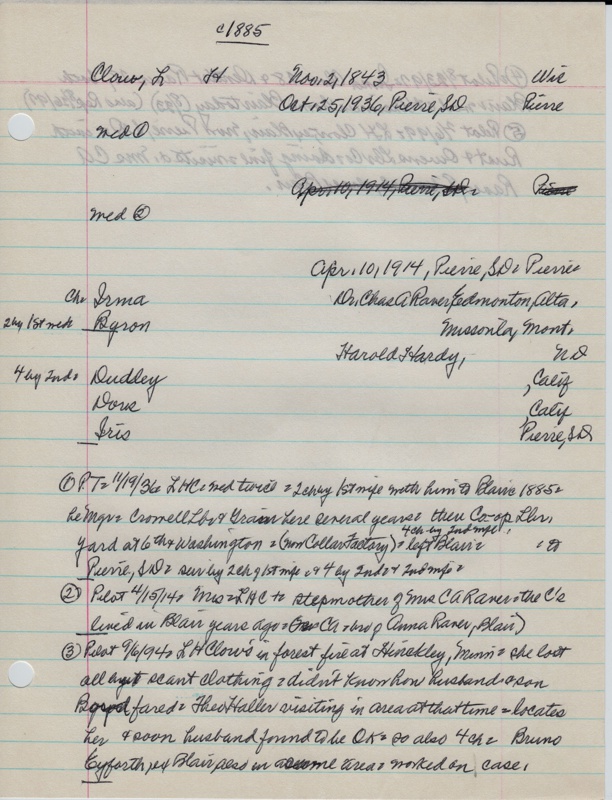 c1885
Clow, L H Nov. 2, 1843 Wis
Oct. 25, 1936, Pierre, S.D. Pierre
med ①
Apr. 10, 1914, Pierre, S.D. Pierre
med ②
Apr. 10, 1914, Pierre, S.D. Pierre
Ch = Irma Dr. Chas A Raver, Edmonton, Alta,
2 by 1st wed = Byron Missoula, Mont,
Harold Hardy, N D
4 by 2nd = Dudley , Calif
Doris , Calif
Iris Pierre, S.D
① P.T = 11/19/36 = L H C = med twice = 2 ch by 1st wife with him to Blair 1885 =
he Mgr = Crowell Lbr & Grain here several years = then Co-op Lbr,
yard at 6th & Washington = (now Collar Factory) = 4 ch by 2nd wife, left Blair = to
Pierre, S.D = sur by 2 ch of 1st wife, & 4 by 2nd & 2nd wife =
② Pilot 4/15/14 = Mrs = L H C = stepmother of Mrs C A Raver = the C's
lived in Blair years ago = CA = bro of Anna Raver, Blair)
③ Pilot 9/6/94 = L H Clow's in forest fire at Hinckley, Minn = she lost
all but scant clothing = didn't know how husband & son
Byron fared = Theo Haller visiting in area at that time = locates
her & soon husband found to be OK = so also 4 ch = Bruno
Cyforth, ex Blair also in area = worked on case,